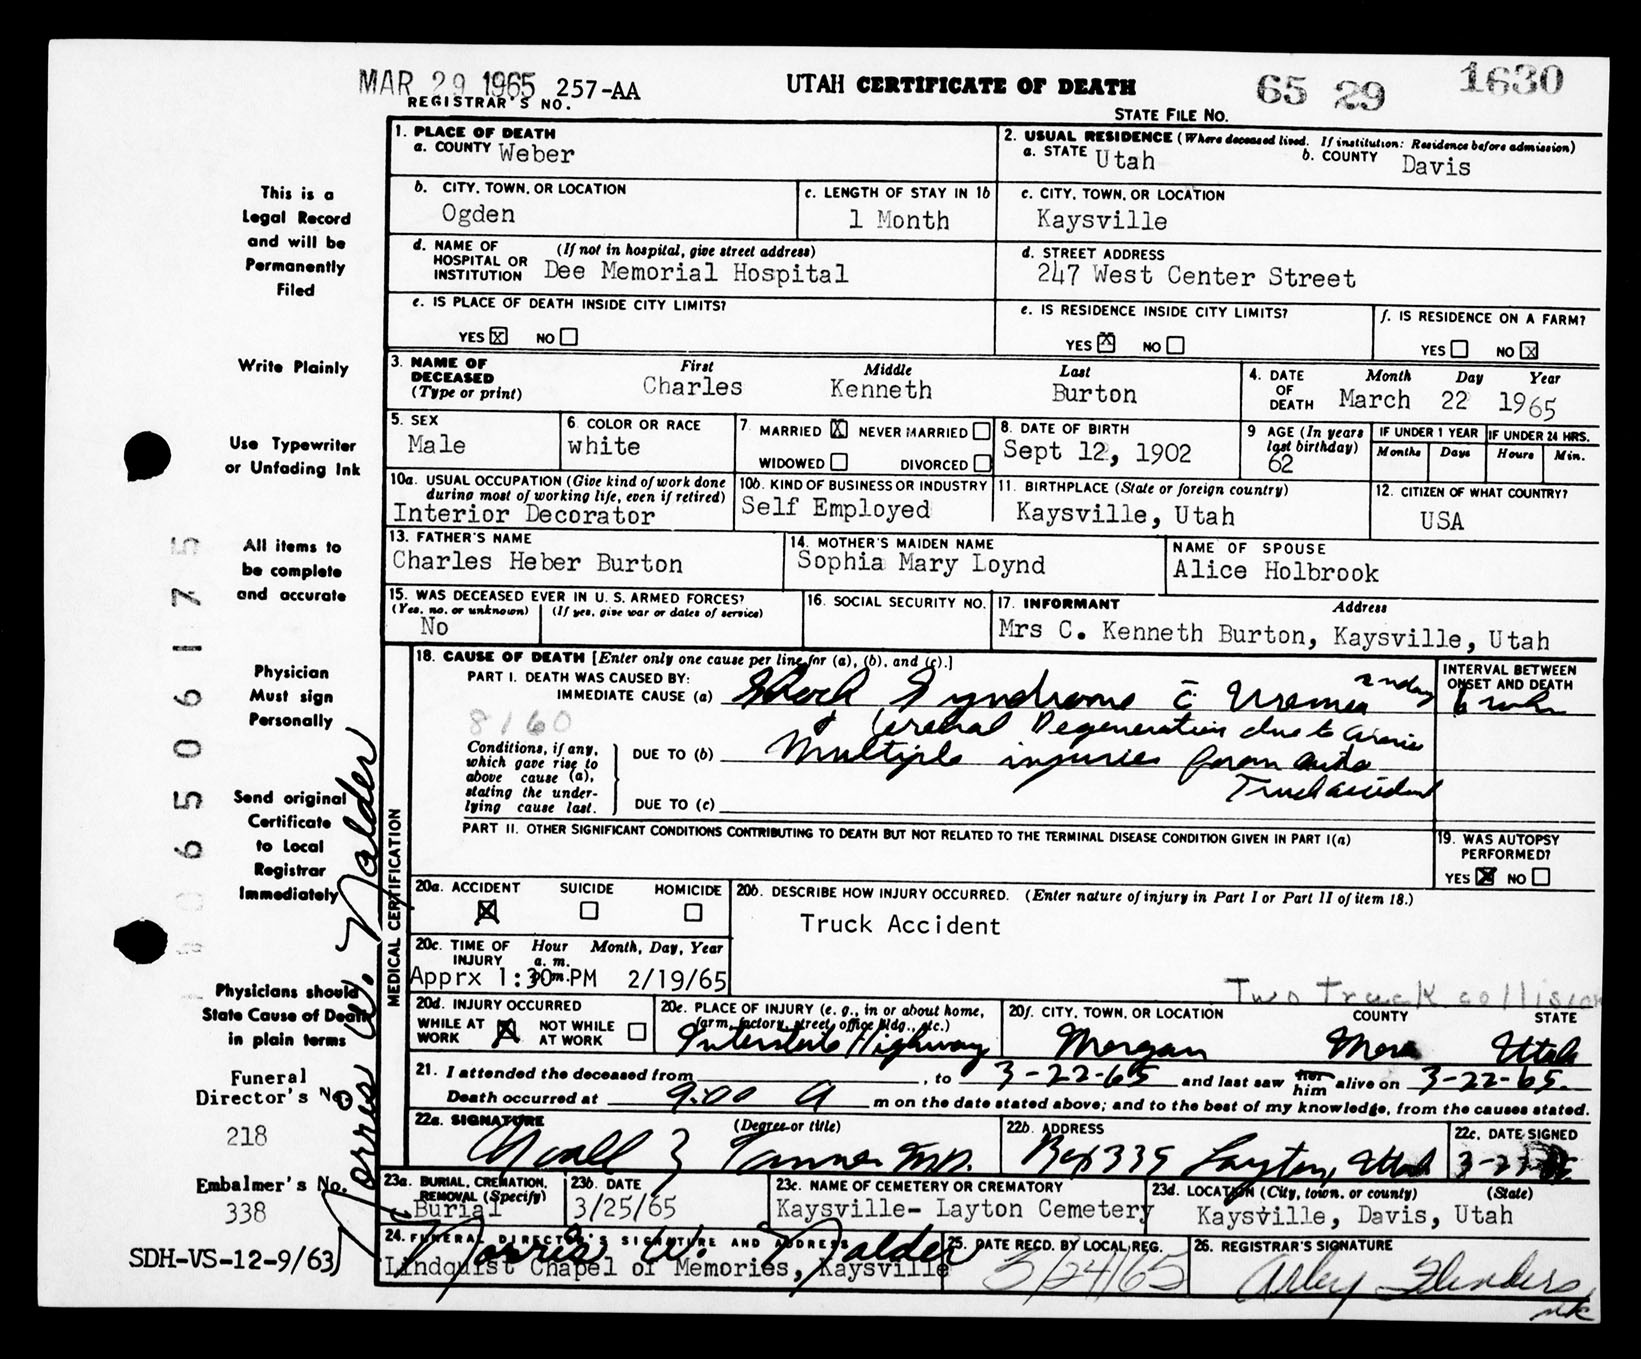 MAR 29 1965 257-AA
REGISTRAR'S NO.
UTAH CERTIFICATE OF DEATH
STATE FILE NO.
65 29 1630
This is a
Legal Record
and will be
Permanently
Filed
Write Plainly
Use Typewriter
or Unfading Ink
All items to
be complete
and accurate
Physician
Must sign
Personally
Send original
Certificate
to Local
Registrar
Immediately
Physicians should
State Cause of Death
in plain terms
Funeral
Director's No.
218
Embalmer's No.
338
SDH-VS-12-9/63
Norris W. Nalder
1. PLACE OF DEATH
a. COUNTY Weber
2. USUAL RESIDENCE (Where deceased lived. If institution: Residence before admission)
a. STATE Utah b. COUNTY Davis
b. CITY, TOWN, OR LOCATION
Ogden
c. LENGTH OF STAY IN 1b
1 Month
c. CITY, TOWN, OR LOCATION
Kaysville
d. NAME OF HOSPITAL OR INSTITUTION (If not in hospital, give street address)
Dee Memorial Hospital
d. STREET ADDRESS
247 West Center Street
e. IS PLACE OF DEATH INSIDE CITY LIMITS?
YES X NO
e. IS RESIDENCE INSIDE CITY LIMITS?
YES X NO
f. IS RESIDENCE ON A FARM?
YES NO X
3. NAME OF DECEASED (Type or print)
First Middle Last
Charles Kenneth Burton
4. DATE OF DEATH
Month Day Year
March 22 1965
5. SEX
Male
6. COLOR OR RACE
white
7. MARRIED X NEVER MARRIED
WIDOWED DIVORCED
8. DATE OF BIRTH
Sept 12, 1902
9 AGE (In years last birthday)
62
IF UNDER 1 YEAR
Months Days
IF UNDER 24 HRS.
Hours Min.
10a. USUAL OCCUPATION (Give kind of work done during most of working life, even if retired)
Interior Decorator
10b. KIND OF BUSINESS OR INDUSTRY
Self Employed
11. BIRTHPLACE (State or foreign country)
Kaysville, Utah
12. CITIZEN OF WHAT COUNTRY?
USA
13. FATHER'S NAME
Charles Heber Burton
14. MOTHER'S MAIDEN NAME
Sophia Mary Loynd
NAME OF SPOUSE
Alice Holbrook
15. WAS DECEASED EVER IN U. S. ARMED FORCES?
(Yes, no, or unknown) (If yes, give war or dates of service)
No
16. SOCIAL SECURITY NO.
17. INFORMANT Address
Mrs C. Kenneth Burton, Kaysville, Utah
MEDICAL CERTIFICATION
18. CAUSE OF DEATH [Enter only one cause per line for (a), (b), and (c).]
PART I. DEATH WAS CAUSED BY:
IMMEDIATE CAUSE (a) Shock Syndrome c̄ Uremia
& Cerebral Degeneration due to
8160
Conditions, if any, which gave rise to above cause (a), stating the underlying cause last.
DUE TO (b) Multiple injuries from auto
Truck accident
DUE TO (c)
INTERVAL BETWEEN ONSET AND DEATH
PART II. OTHER SIGNIFICANT CONDITIONS CONTRIBUTING TO DEATH BUT NOT RELATED TO THE TERMINAL DISEASE CONDITION GIVEN IN PART I(a)
19. WAS AUTOPSY PERFORMED?
YES X NO
20a. ACCIDENT SUICIDE HOMICIDE
X
20b. DESCRIBE HOW INJURY OCCURRED. (Enter nature of injury in Part I or Part II of item 18.)
Truck Accident
Two truck collision
20c. TIME OF INJURY Hour Month, Day, Year
a. m.
p. m.
Apprx 1:30 PM 2/19/65
20d. INJURY OCCURRED
WHILE AT WORK X NOT WHILE AT WORK
20e. PLACE OF INJURY (e. g., in or about home, farm, factory, street, office bldg., etc.)
Interstate Highway
20f. CITY, TOWN, OR LOCATION COUNTY STATE
Morgan Utah
21. I attended the deceased from , to 3-22-65 and last saw her him alive on 3-22-65.
Death occurred at 9:00 A m on the date stated above; and to the best of my knowledge, from the causes stated.
22a. SIGNATURE (Degree or title)
Tanner M.D.
22b. ADDRESS
Box 335 Layton, Utah
22c. DATE SIGNED
23a. BURIAL, CREMATION, REMOVAL (Specify)
Burial
23b. DATE
3/25/65
23c. NAME OF CEMETERY OR CREMATORY
Kaysville- Layton Cemetery
23d. LOCATION (City, town, or county) (State)
Kaysville, Davis, Utah
24. FUNERAL DIRECTOR'S SIGNATURE AND ADDRESS
Norris W. Nalder
Lindquist Chapel of Memories, Kaysville
25. DATE RECD. BY LOCAL REG.
3/24/65
26. REGISTRAR'S SIGNATURE
Arley Flinders